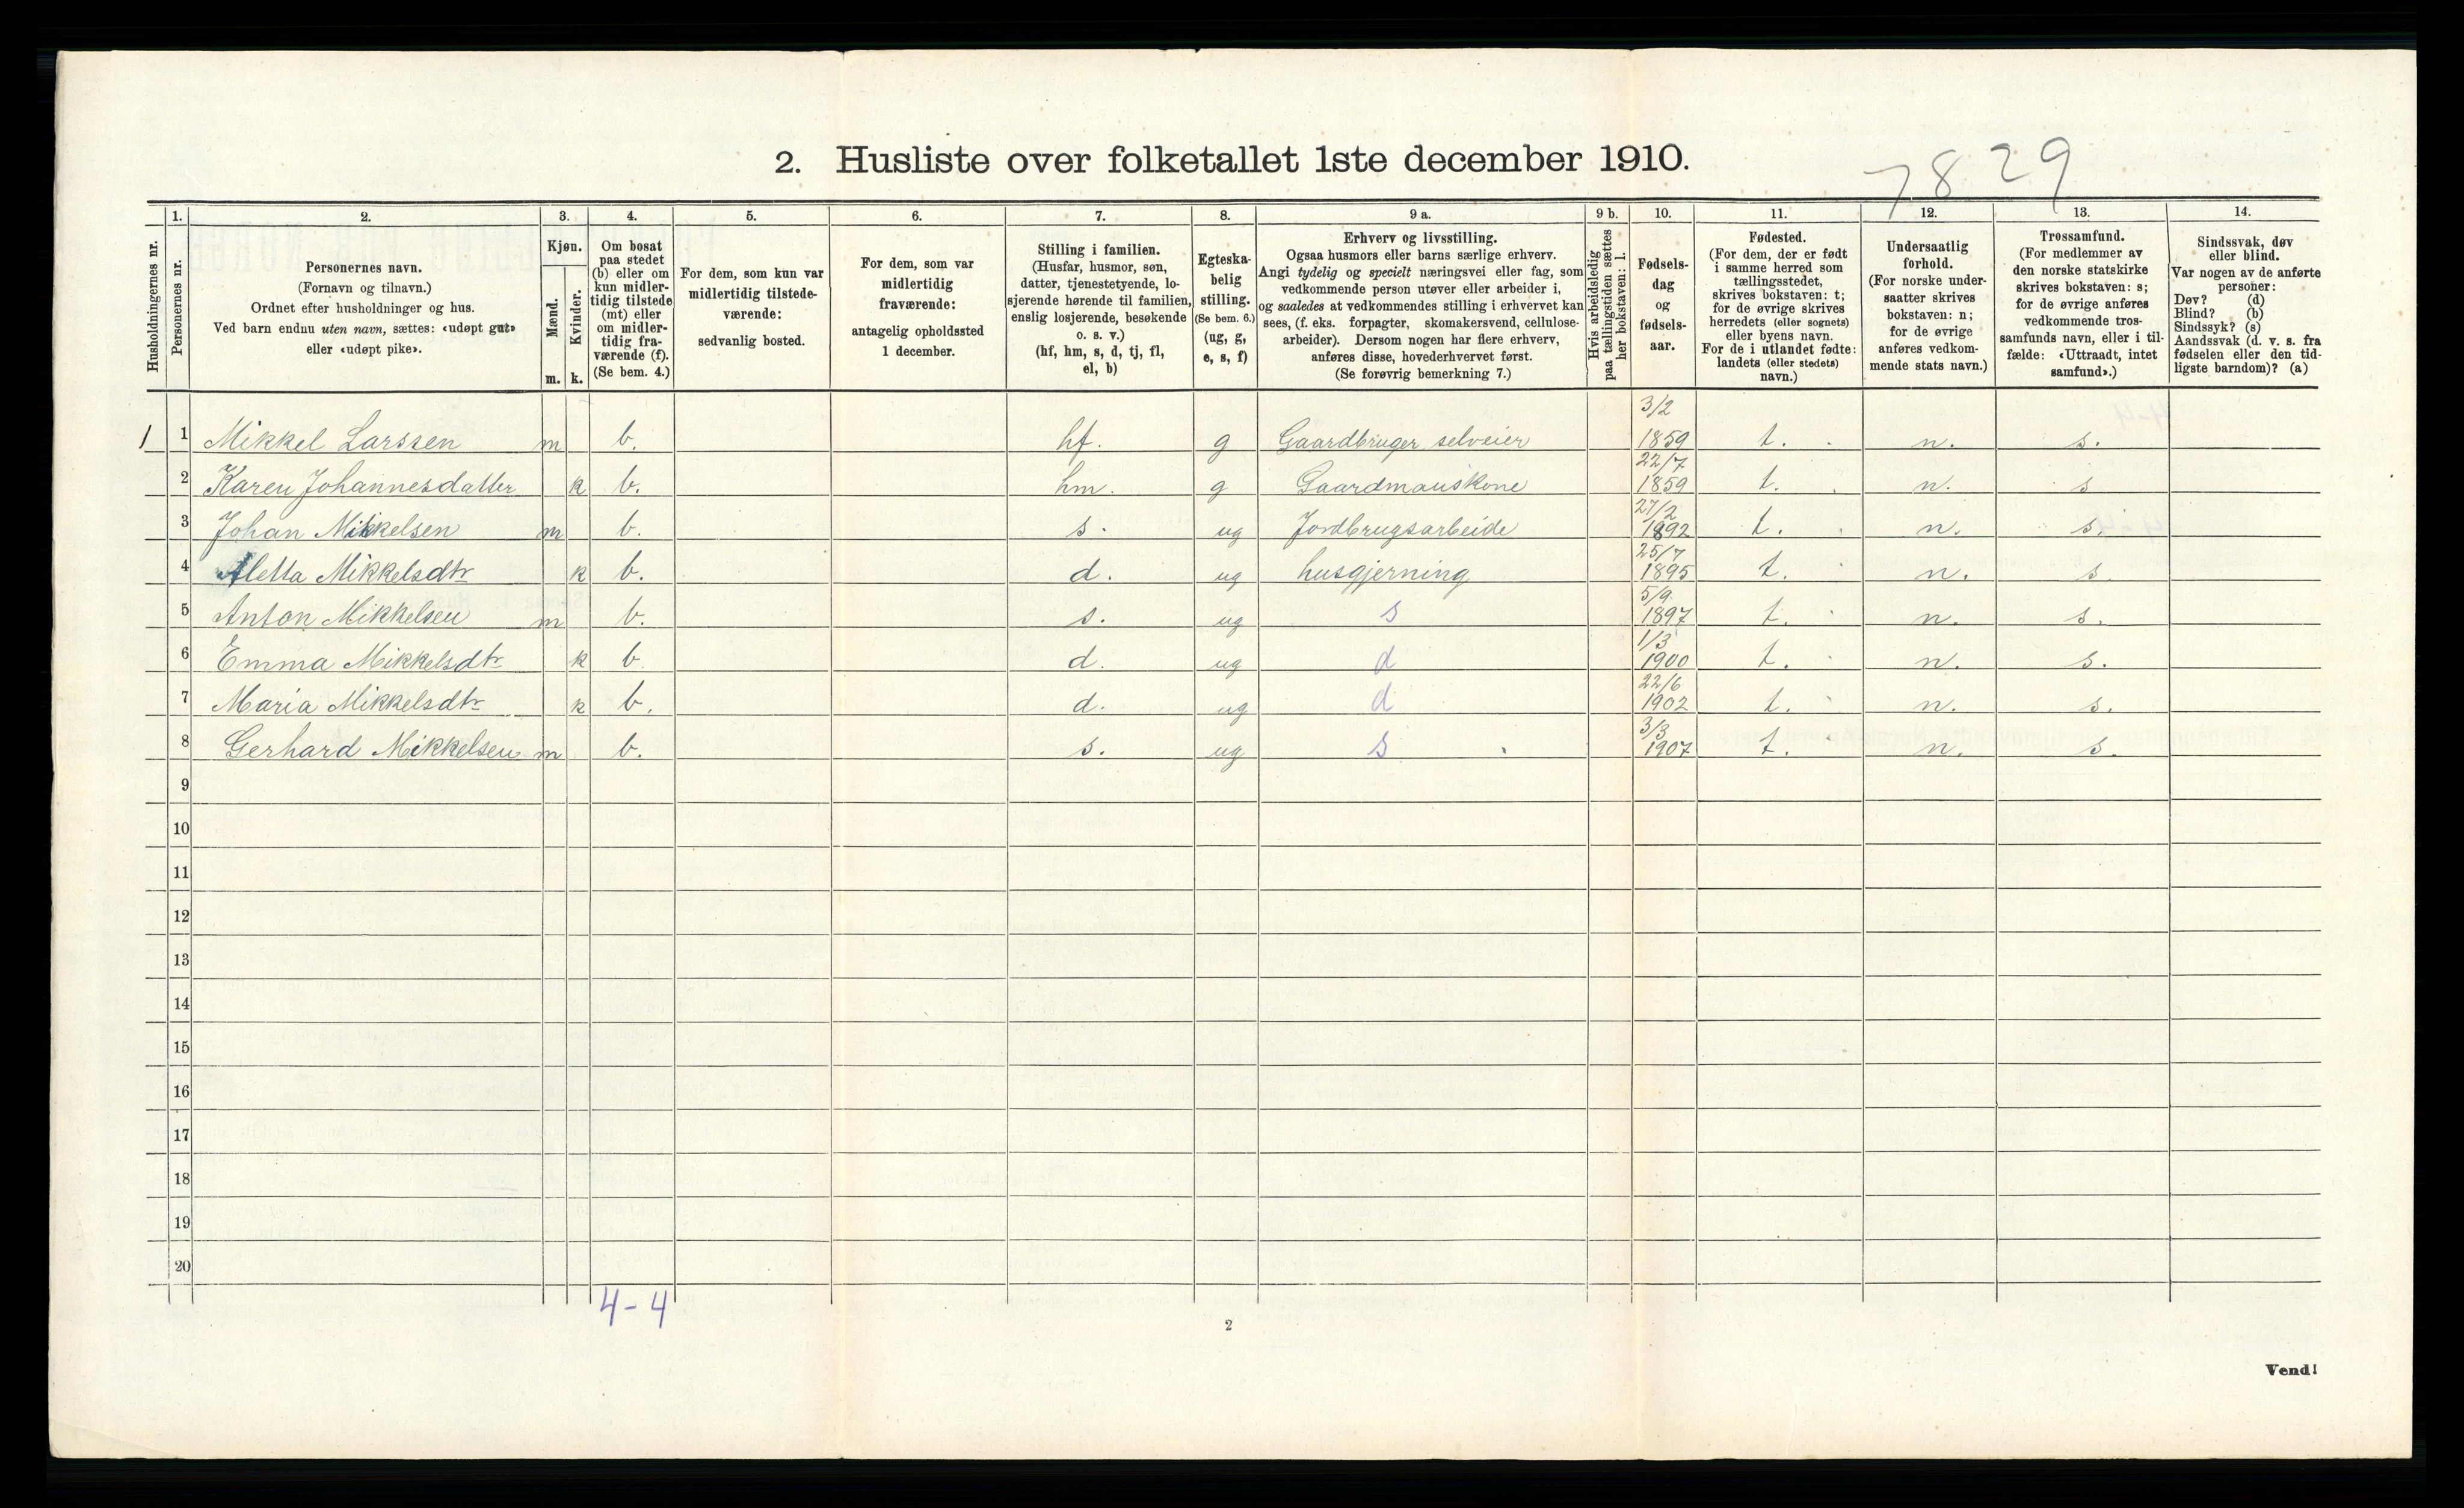 2. Husliste over folketallet 1ste december 1910.
7829
Husholdningernes nr.
1.
Personernes nr.
2.
Personernes navn.
(Fornavn og tilnavn.)
Ordnet efter husholdninger og hus.
Ved barn endnu uten navn, sættes: «udøpt gut»
eller «udøpt pike».
3.
Kjøn.
Mænd.
Kvinder.
m. k.
4.
Om bosat
paa stedet
(b) eller om
kun midler-
tidig tilstede
(mt) eller
om midler-
tidig fra-
værende (f).
(Se bem. 4.)
5.
For dem, som kun var
midlertidig tilstede-
værende:
sedvanlig bosted.
6.
For dem, som var
midlertidig
fraværende:
antagelig opholdssted
1 december.
7.
Stilling i familien.
(Husfar, husmor, søn,
datter, tjenestetyende, lo-
sjerende hørende til familien,
enslig losjerende, besøkende
o. s. v.)
(hf, hm, s, d, tj, fl,
el, b)
8.
Egteska-
belig
stilling.
(Se bem. 6.)
(ug, g,
e, s, f)
9 a.
Erhverv og livsstilling.
Ogsaa husmors eller barns særlige erhverv.
Angi tydelig og specielt næringsvei eller fag, som
vedkommende person utøver eller arbeider i,
og saaledes at vedkommendes stilling i erhvervet kan
sees, (f. eks. forpagter, skomakersvend, cellulose-
arbeider). Dersom nogen har flere erhverv,
anføres disse, hovederhvervet først.
(Se forøvrig bemerkning 7.)
9 b.
Hvis arbeidsledig
paa tællingstiden sættes
her bokstaven: l.
10.
Fødsels-
dag
og
fødsels-
aar.
11.
Fødested.
(For dem, der er født
i samme herred som
tællingsstedet,
skrives bokstaven: t;
for de øvrige skrives
herredets (eller sognets)
eller byens navn.
For de i utlandet fødte:
landets (eller stedets)
navn.)
12.
Undersaatlig
forhold.
(For norske under-
saatter skrives
bokstaven: n;
for de øvrige
anføres vedkom-
mende stats navn.)
13.
Trossamfund.
(For medlemmer av
den norske statskirke
skrives bokstaven: s;
for de øvrige anføres
vedkommende tros-
samfunds navn, eller i til-
fælde: «Uttraadt, intet
samfund».)
14.
Sindssvak, døv
eller blind.
Var nogen av de anførte
personer:
Døv? (d)
Blind? (b)
Sindssyk? (s)
Aandssvak (d. v. s. fra
fødselen eller den tid-
ligste barndom)? (a)
1 1 Mikkel Larssen m b. hf. g Gaardbruger selveier 3/2 1859 t. n. s.
2 Karen Johannesdatter k b. hm. g Gaardmandskone 22/7 1859 t. n. s
3 Johan Mikkelsen m b. s. ug Jordbrugsarbeide 27/2 1892 t. n. s.
4 Aletta Mikkelsdtr k b. d. ug husgjerning 25/7 1895 t. n. s.
5 Anton Mikkelsen m b. s. ug s 5/9 1897 t. n. s.
6 Emma Mikkelsdtr k b. d. ug d 1/3 1900 t. n. s.
7 Maria Mikkelsdtr k b. d. ug d 22/6 1902 t. n. s.
8 Gerhard Mikkelsen m b. s. ug s 3/3 1907 t. n. s.
9
10
11
12
13
14
15
16
17
18
19
20
4-4
2
Vend!